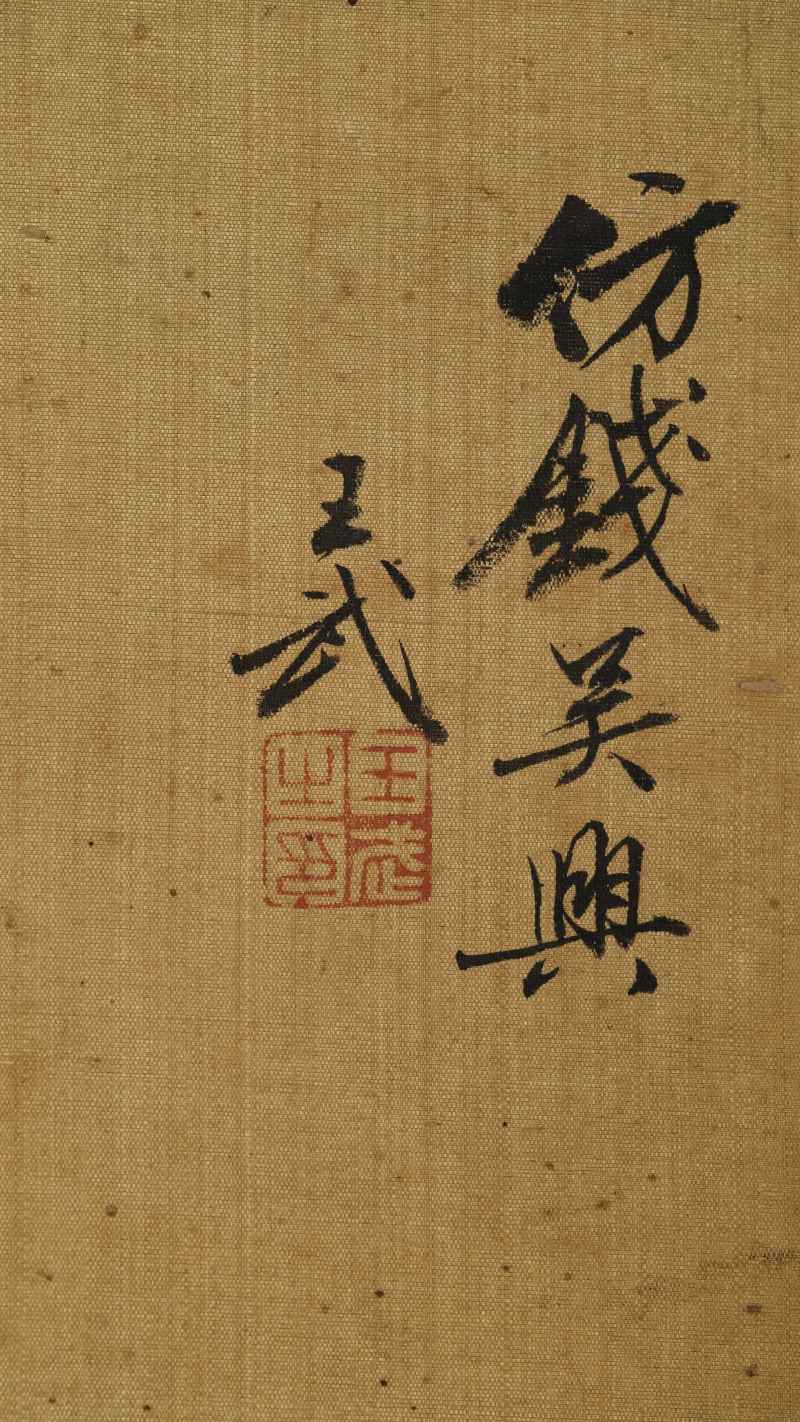 仿錢吴興
王武
王武之印